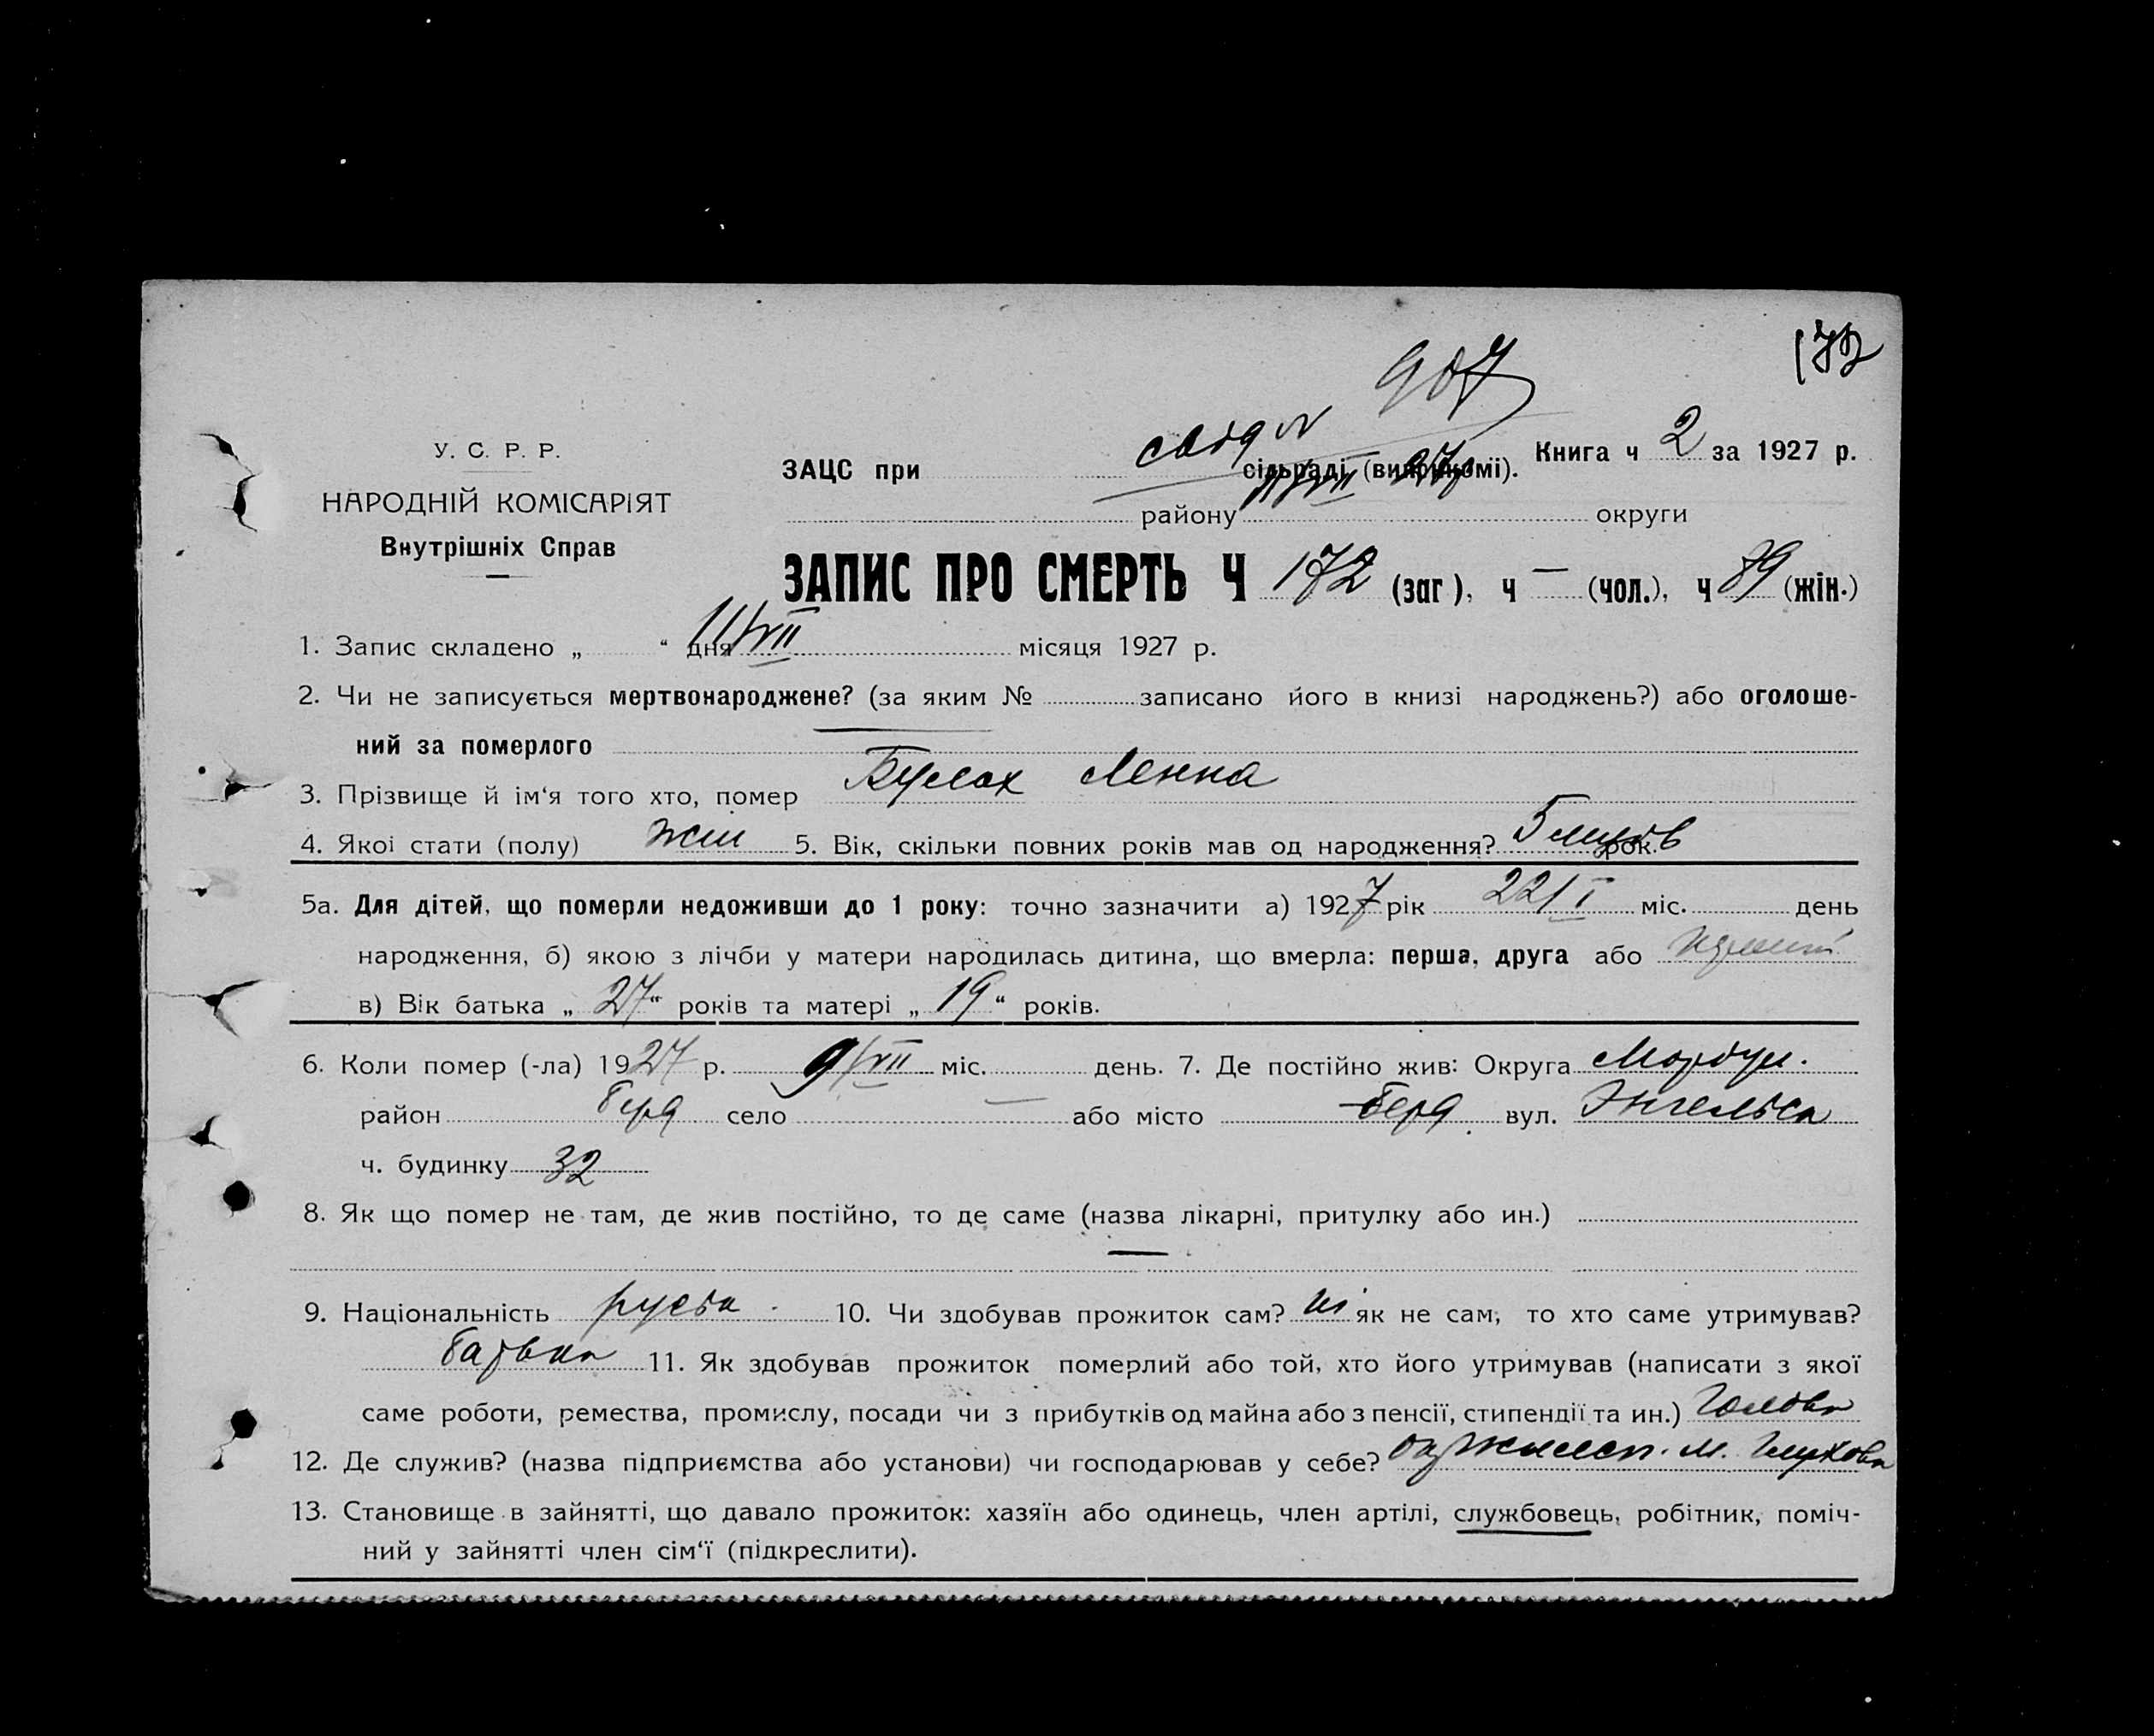 172
907
свід №
У. С. Р. Р.
ЗАЦС при сільраді (виконкомі). Книга ч 2 за 1927 р.
11/VII 27р
НАРОДНІЙ КОМІСАРІЯТ
району округи
Внутрішніх Справ
ЗАПИС ПРО СМЕРТЬ Ч 172 (заг), ч — (чол.), ч 79 (жін.)
1. Запис складено „ “ дня 11/VII місяця 1927 р.
2. Чи не записується мертвонароджене? (за яким № записано його в книзі народжень?) або оголоше-
ний за померлого
3. Прізвище й ім‘я того хто, помер Булах Ленна
4. Якої стати (полу) жін 5. Вік, скільки повних років мав од народження? 5 місяців рок.
5а. Для дітей, що померли недоживши до 1 року: точно зазначити а) 1927 рік 22/I міс. день
народження, б) якою з лічби у матери народилась дитина, що вмерла: перша, друга або
в) Вік батька „ 27 “ років та матері „ 19 “ років.
6. Коли помер (-ла) 1927 р. 9/VII міс. день. 7. Де постійно жив: Округа Маріуп.
район Берд село — або місто Берд. вул. Энгельса
ч. будинку 32
8. Як що помер не там, де жив постійно, то де саме (назва лікарні, притулку або ин.)
—
9. Національність руська. 10. Чи здобував прожиток сам? ні як не сам, то хто саме утримував?
батько 11. Як здобував прожиток померлий або той, хто його утримував (написати з якої
саме роботи, ремества, промислу, посади чи з прибутків од майна або з пенсії, стипендії та ин.) Голова
12. Де служив? (назва підприємства або установи) чи господарював у себе? м. Глухова
13. Становище в зайнятті, що давало прожиток: хазяїн або одинець, член артілі, службовець, робітник, поміч-
ний у зайнятті член сім‘ї (підкреслити).